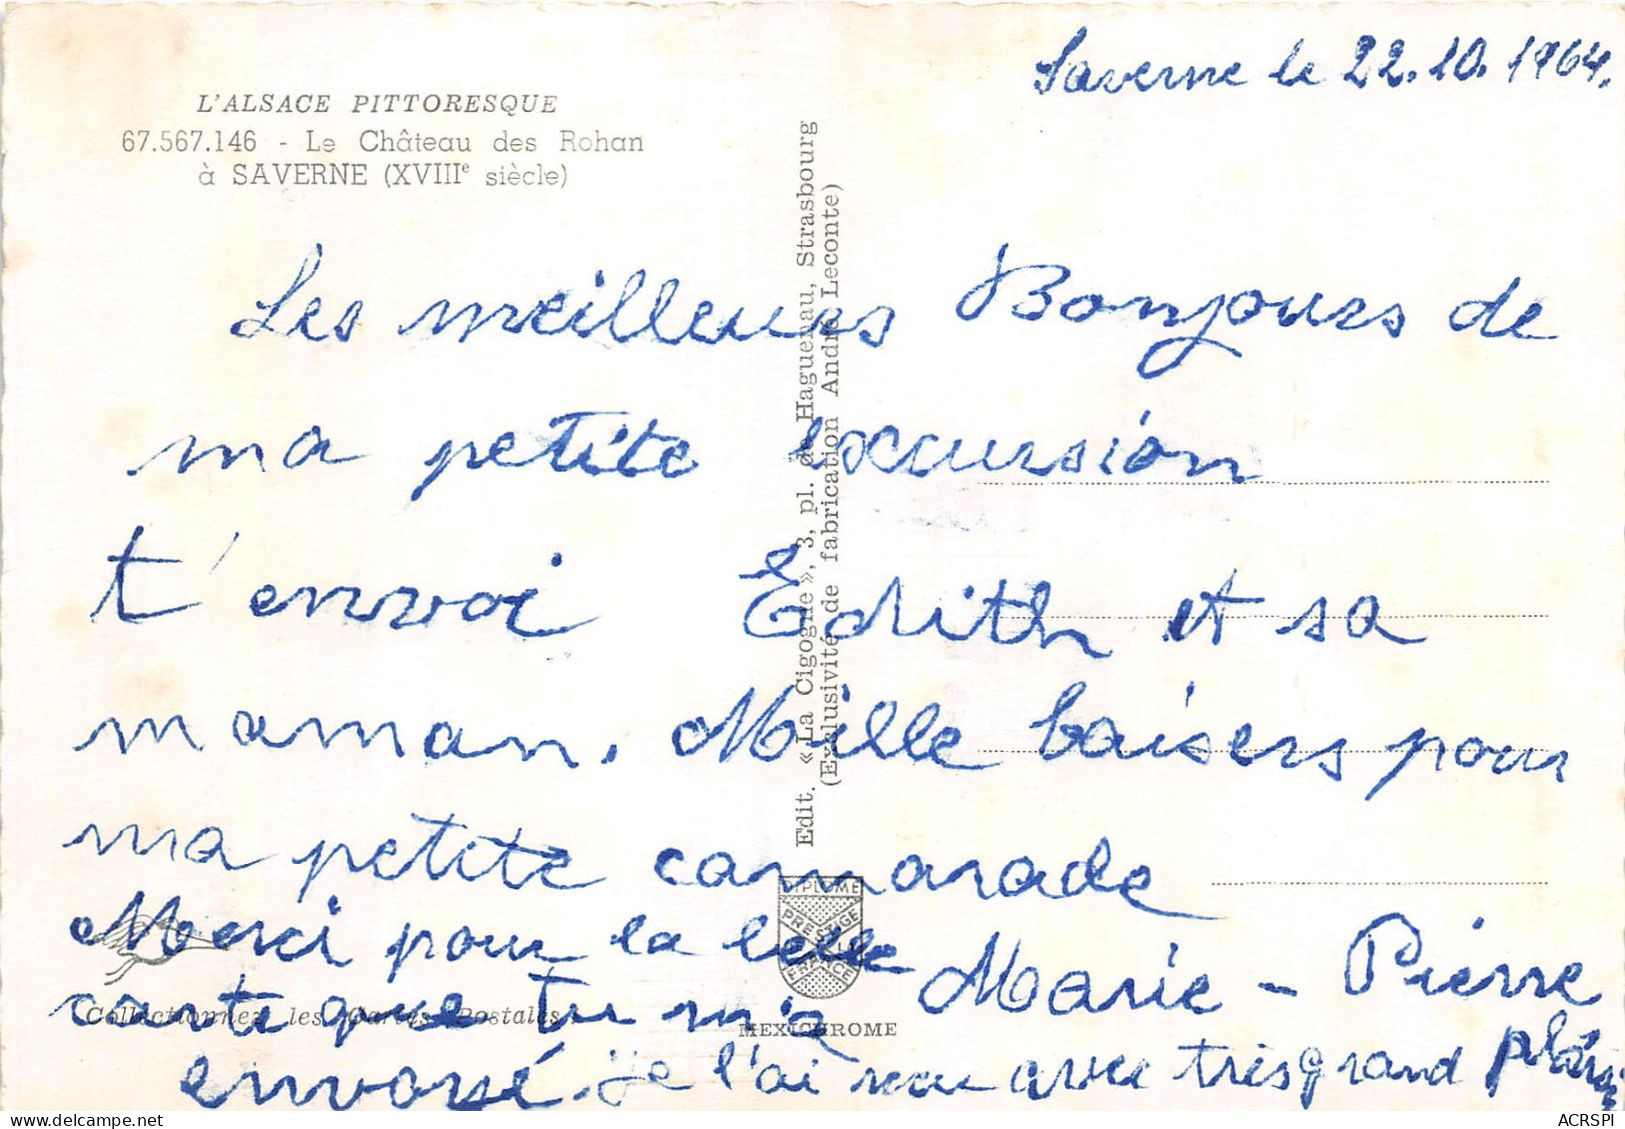 Saverne le 22.10.1964.
L'ALSACE PITTORESQUE
67.567.146 - Le Château des Rohan
à SAVERNE (XVIIIe siècle)
Les meilleurs Bonjours de
ma petite excursion
t'envoi Edith et sa
maman. Mille baisers pour
ma petite camarade
Marie-Pierre
Merci pour la belle
carte que tu m'a
envoyé. je l'ai reçu avec très grand plaisir
Edit. « La Cigogne », 3, pl. de Haguenau, Strasbourg
(Exclusivité de fabrication André Leconte)
DIPLOME
PRESTIGE
DE LA
FRANCE
Collectionnez les Cartes Postales
MEXICHROME
ACRSPI